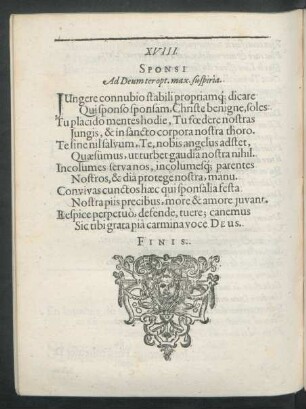 XVIII.
SPONSI
Ad Deum ter opt. max. suspiria.
JUngere connubio stabili propriamq́; dicare
Qui sponso sponsam, Christe benigne, soles
Tu placido mentes hodie, Tu fœdere nostras
Jungis, & in sancto corpora nostra thoro.
Te sine nil salvum, Te, nobis angelus adstet,
Quæsumus, ut turbet gaudia nostra nihil.
Incolumes serva nos, incolumesq́; parentes
Nostros, & diâ protege nostra, manu.
Convivas cunctos hæc qui sponsalia festa
Nostra piis precibus, more & amore juvant,
Respice perpetuò, defende, tuere; canemus
Sic tibi grata piâ carmina voce DEUS.
FINIS.